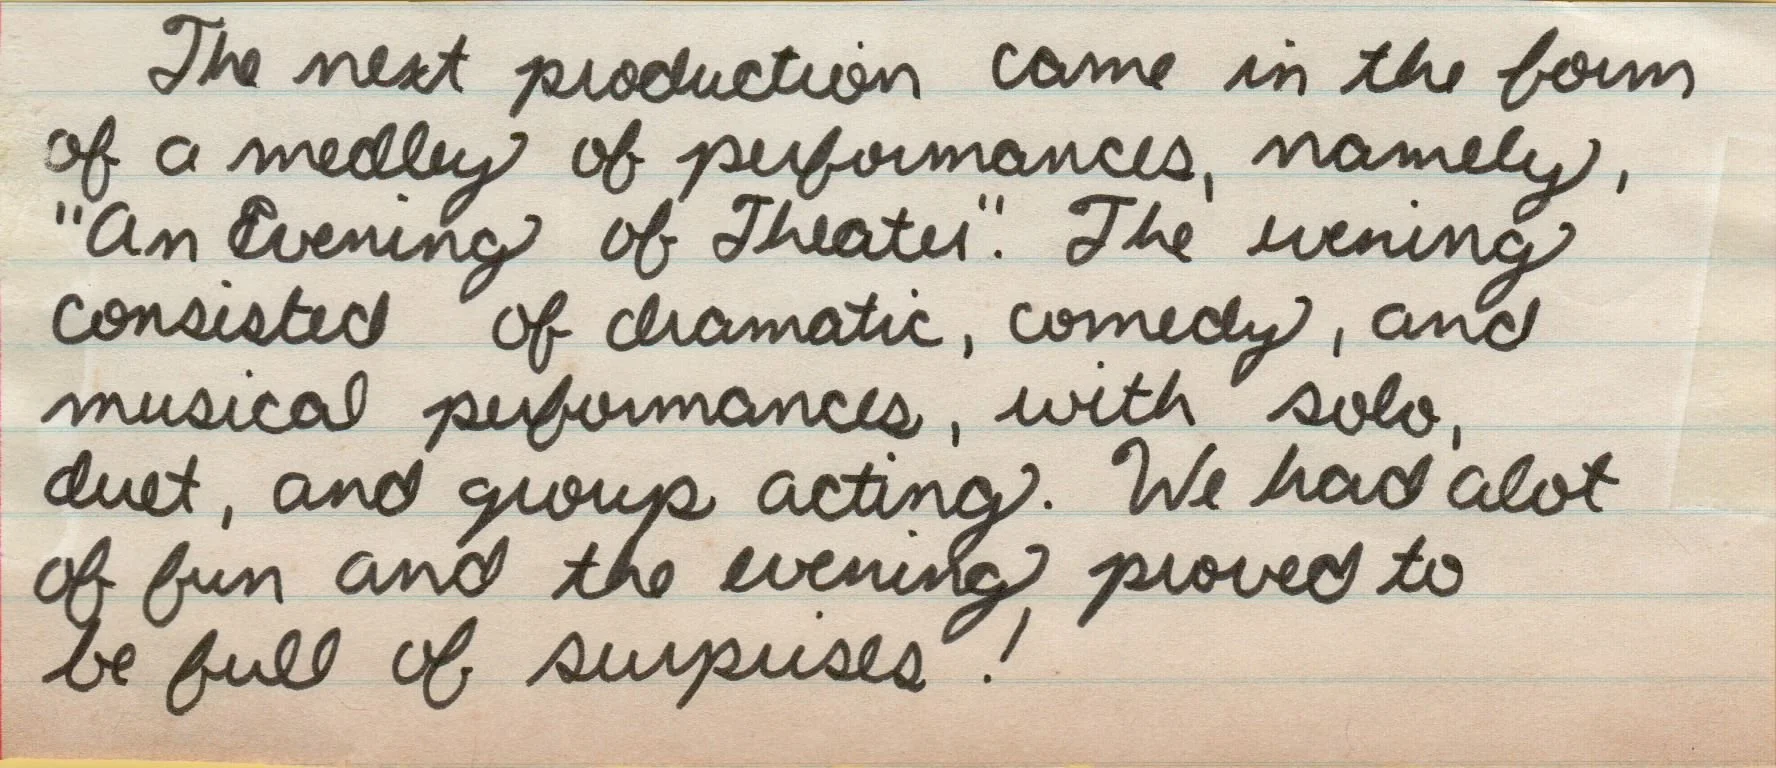 The next production came in the form
of a medley of performances, namely,
"An Evening of Theater". The evening
consisted of dramatic, comedy, and
musical performances, with solo,
duet, and group acting. We had alot
of fun and the evening, proved to
be full of surprises!